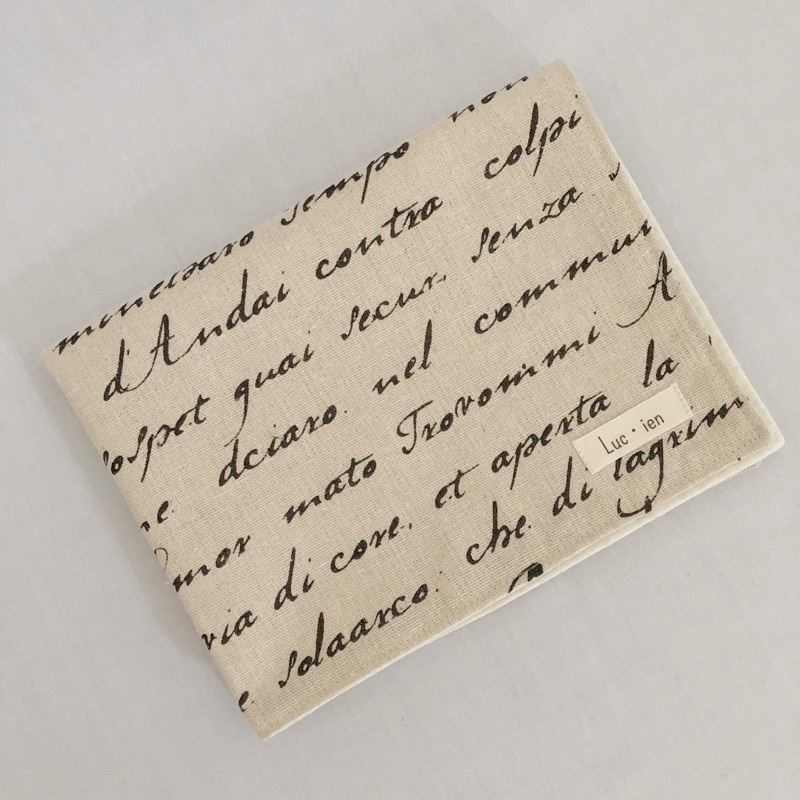 sempo non
d'Andai contra colpi
ospet guai secur. senza s
ne dciaro. nel commun
mor mato Trovommi A
via di core. et aperta la
e solaarco. che. di lagrim
Luc・ien